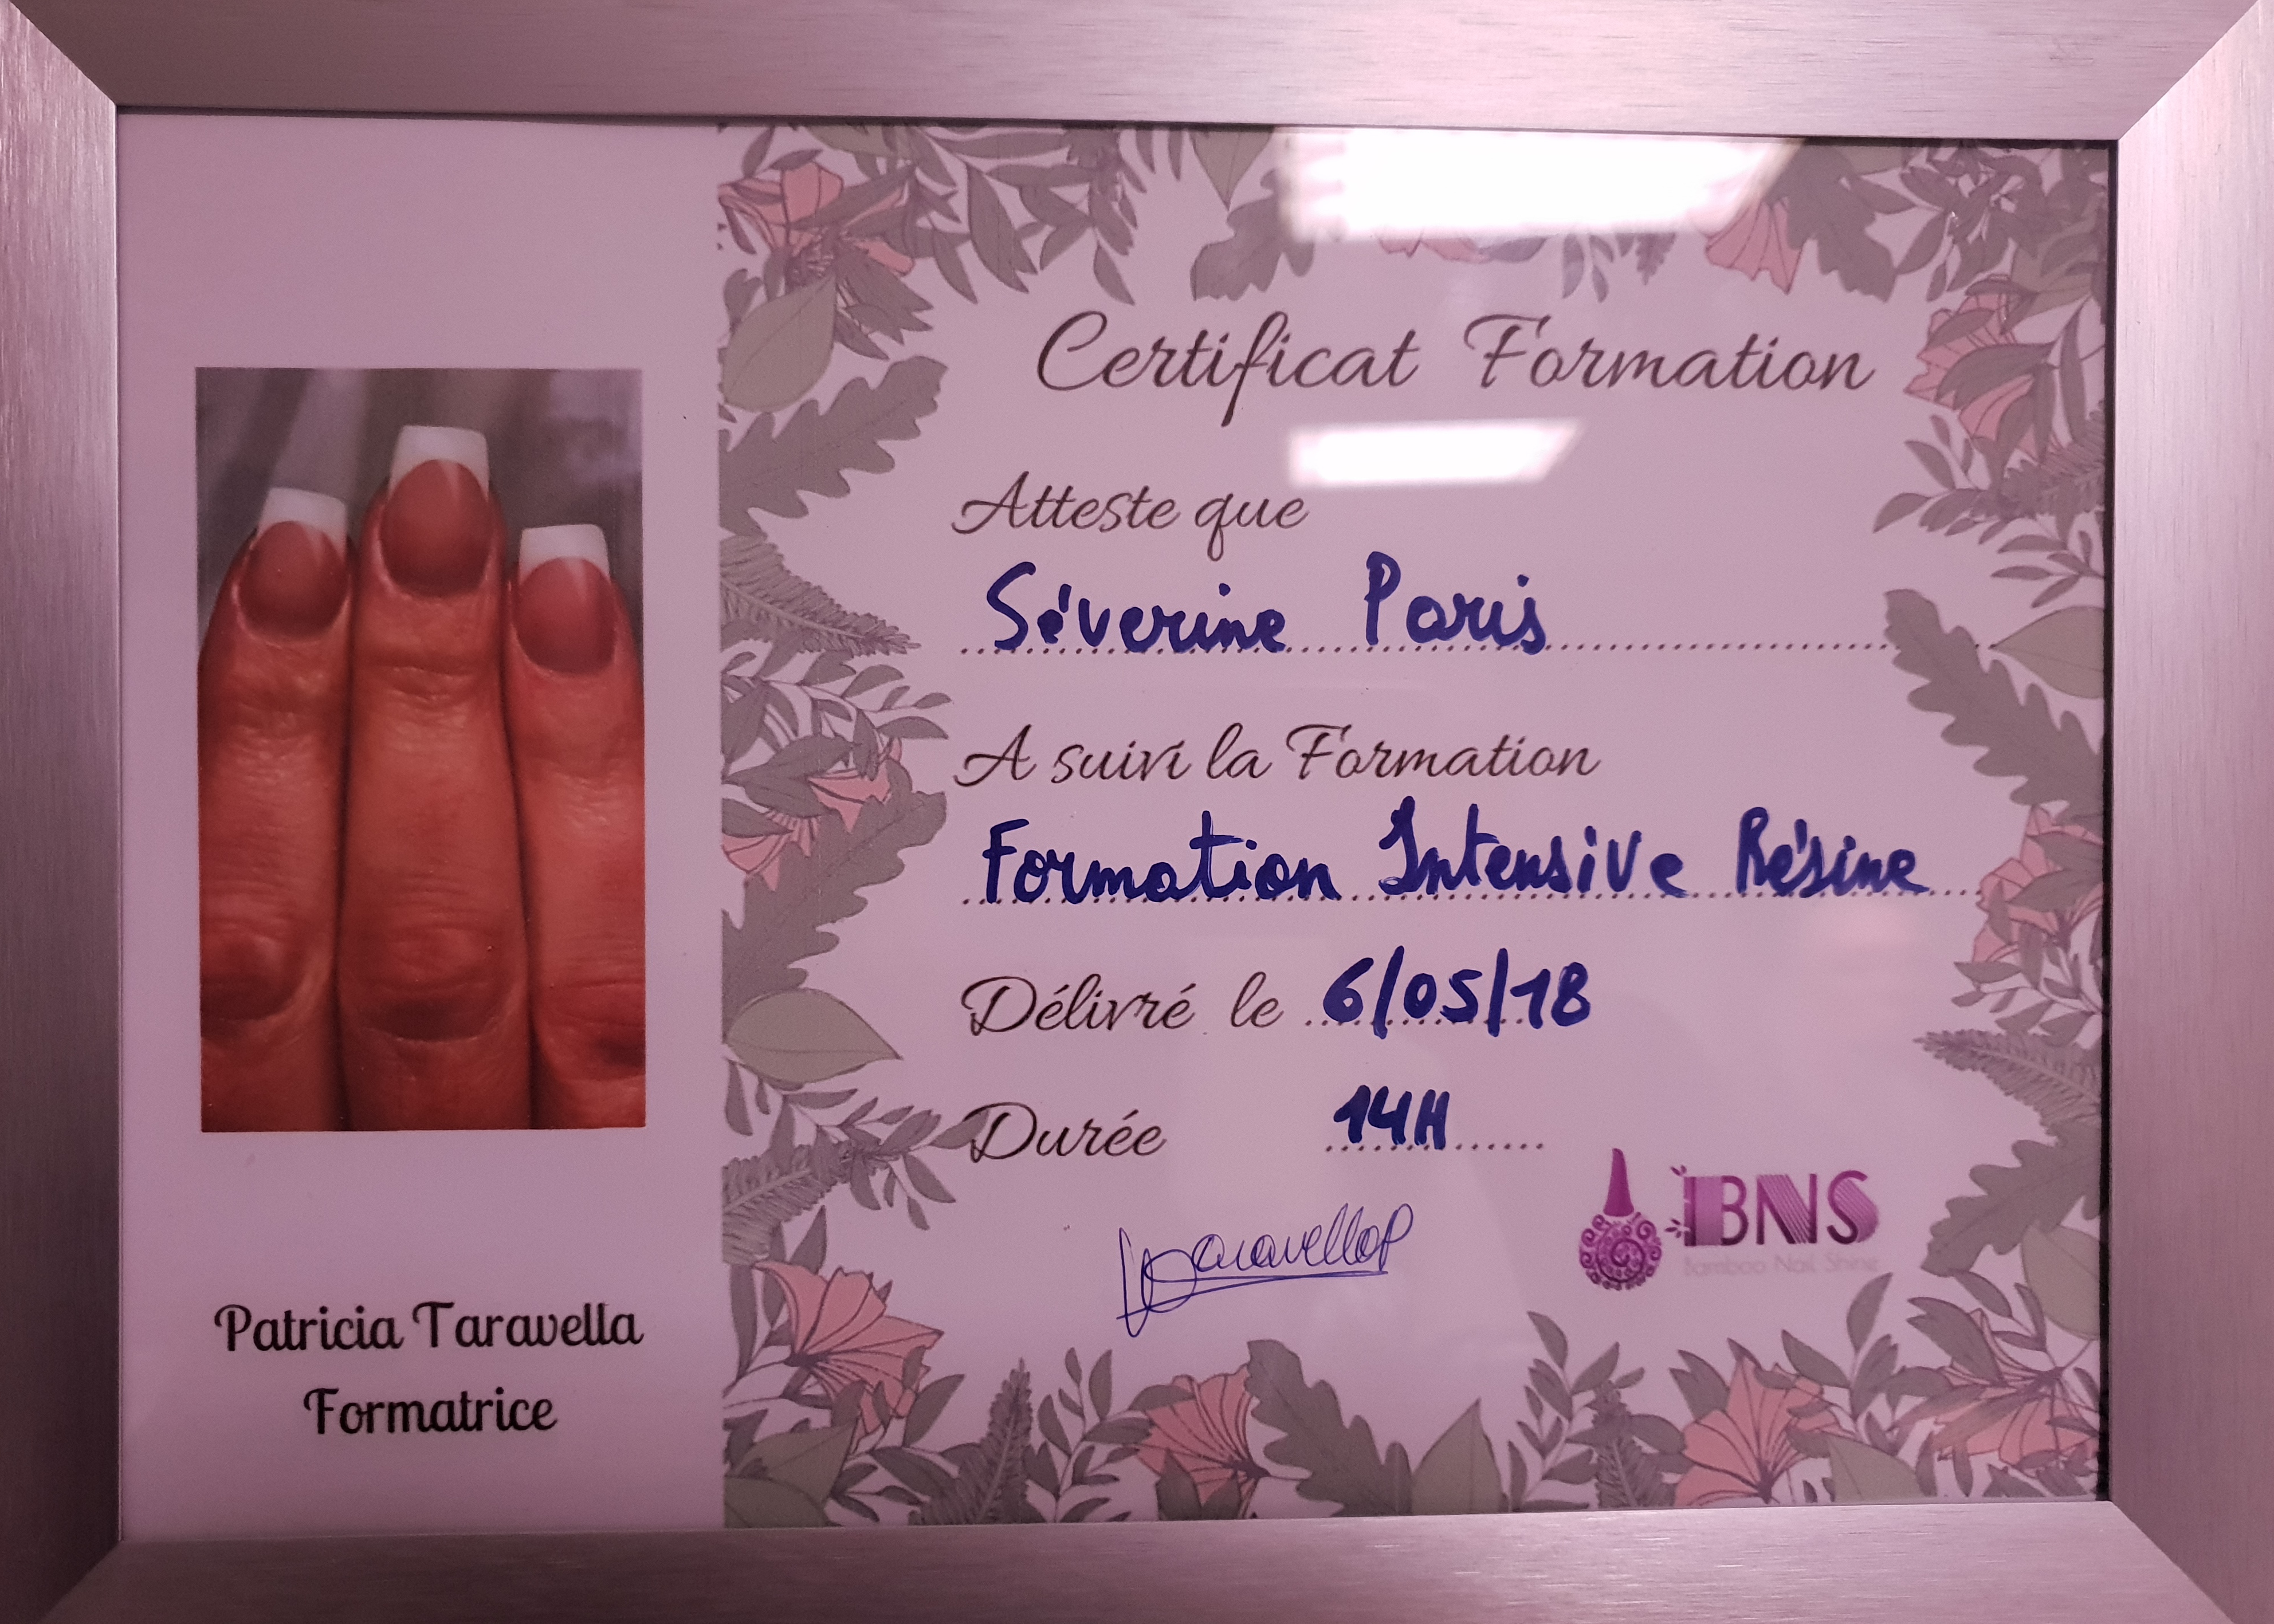 Certificat Formation
Atteste que
Séverine Paris
A suivi la Formation
Formation Intensive Résine
Délivré le 6/05/18
Durée 14H
TaravellaP
BNS
Bamboo Nail Shine
Patricia Taravella
Formatrice